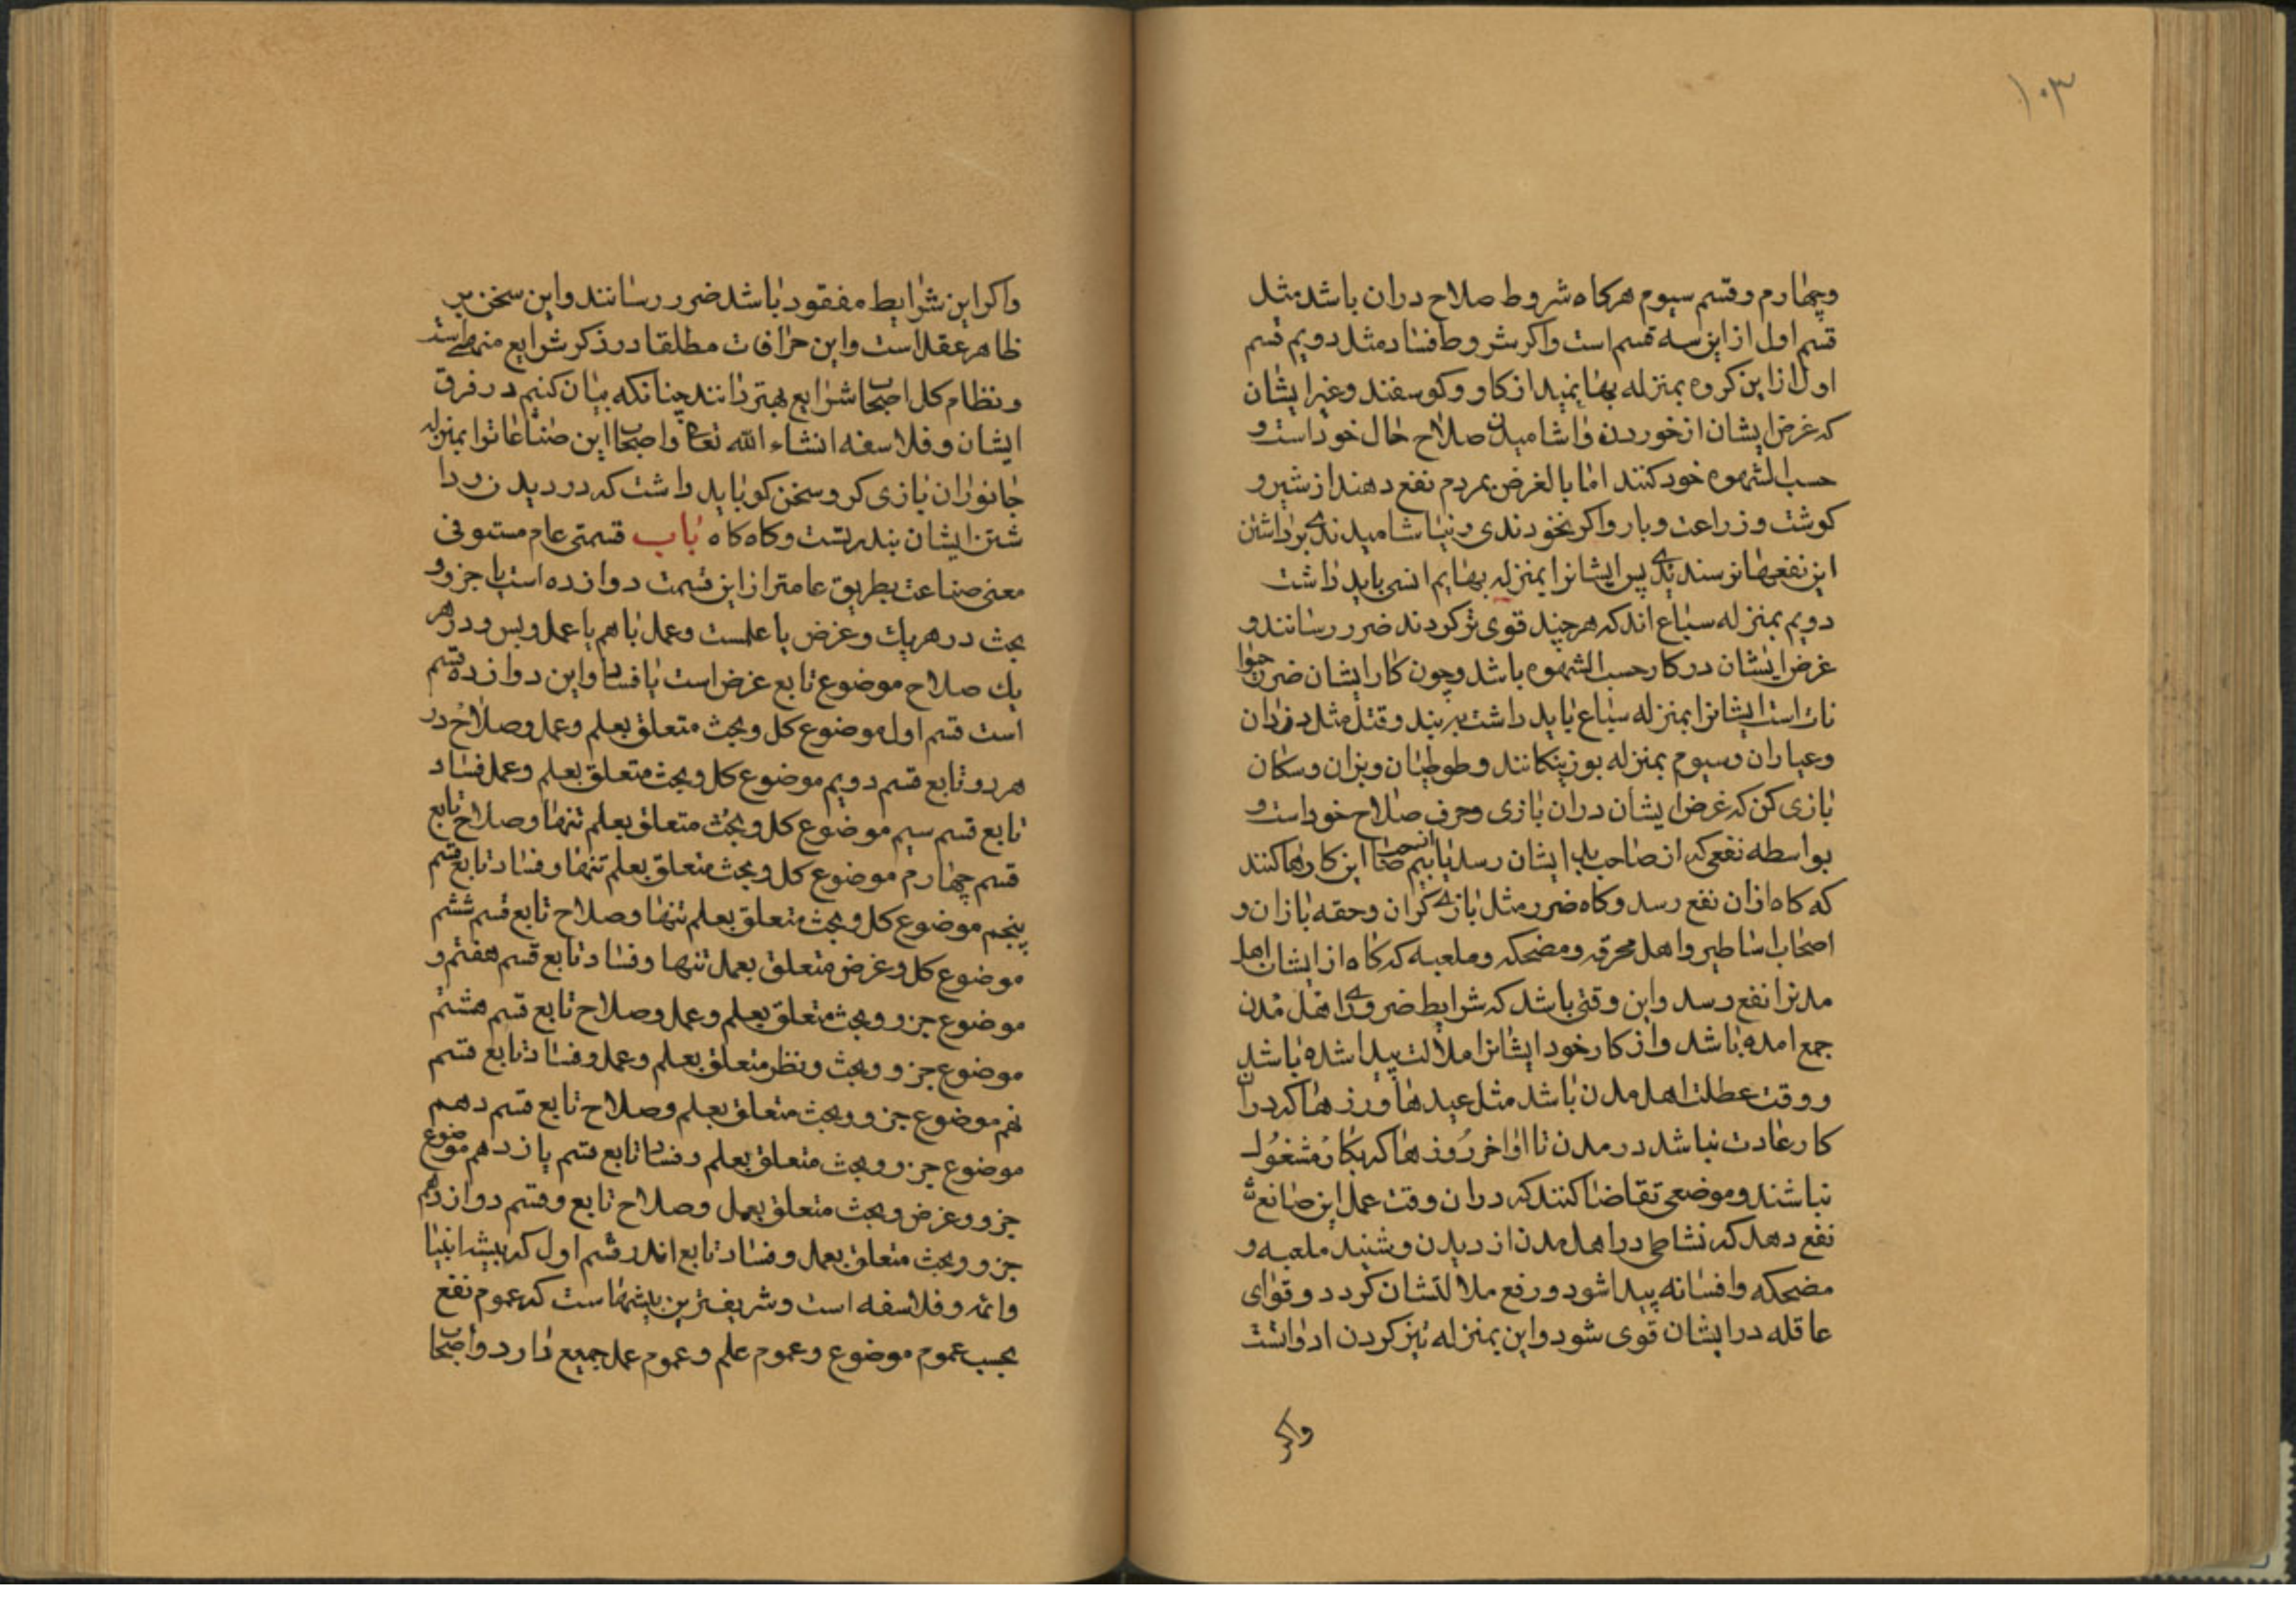 ۱۰۳
وچهارم وقسم سیوم هرکاه شروط صلاح دران باشد مثل
قسم اول از این سه قسم است واکر شروط فساد مثل دویم قسم
اول از این کروه بمنزله بهایمند از کاو وکوسفند وغیر ایشان
که غرض ایشان از خوردن واشامیدن صلاح حال خود است و
حسب الشهوه خود کنند اما بالغرض بمردم نفع دهند از شیر و
کوشت وزراعت وبار واکر نخوردندی ونیاشامیدندی برداشتن
این نفعها نرسندی پس ایشانرا بمنزله بهایم انسی باید داشت
دویم بمنزله سباع اند که هرچند قوی تر کردند ضرر رسانند و
غرض ایشان در کار حسب الشهوه باشد وچون کار ایشان ضرر حیوا
نات است ایشانرا بمنزله سباع باید داشت بر بند وقتل مثل دزدان
وعیاران وسیوم بمنزله بوزینکانند وطوطیان وبزان وسکان
بازی کن که غرض ایشان دران بازی وحرف صلاح خود است و
بواسطه نفعی که از صاحب بایشان رسد این کارها کنند
که کاه ازان نفع رسد وکاه ضرر مثل بازی کران وحقه بازان و
اصحاب اساطیر واهل مخرقه ومضحکه وملعبه که کاه از ایشان اهل
مدنرا نفع رسد واین وقتی باشد که شرایط ضروری اهل مدن
جمع امده باشد واز کار خود ایشانرا ملالت پیدا شده باشد
ووقت عطلت اهل مدن باشد مثل عیدها وروزها که دران
کار عادت نباشد در مدن تا اواخر روزها که بکار مشغول
نباشند وموضعی تقاضا کنند که دران وقت عمل این صانع
نفع دهد که نشاطی در اهل مدن از دیدن وشنید ملعبه و
مضحکه وافسانه پیدا شود ورفع ملالتشان کردد وقوای
عاقله در ایشان قوی شود واین بمنزله تیز کردن ادواتست
واکر
واکر این شرایط مفقود باشد ضرر رسانند واین سخن بر
ظاهر عقل است واین خرافات مطلقا در ذکر شرایع منهی است
ونظام کل اصحاب شرایع بهتر دانند چنانکه بیان کنیم در فرق
ایشان وفلاسفه انشاء الله تعالی واصحاب این صناعاترا بمنزله
جانوران بازی کر وسخن کو باید داشت که در دیدن ودا
شتن ایشان بند ربتست وکاه کاه باب قسمتی عام مستوفی
معنی صناعت بطریق عامتر از این قسمت دوازده است یا جزو و
بحث در هر یک وغرض یا علمست وعمل با هم یا عمل وبس ودر هر
یک صلاح موضوع تابع غرض است یا فساد واین دوازده قسم
است قسم اول موضوع کل وبحث متعلق بعلم وعمل وصلاح در
هر دو تابع قسم دویم موضوع کل وبحث متعلق بعلم وعمل فساد
تابع قسم سیم موضوع کل وبحث متعلق بعلم تنها وصلاح تابع
قسم چهارم موضوع کل وبحث متعلق بعلم تنها وفساد تابع قسم
پنجم موضوع کل وبحث متعلق بعلم تنها وصلاح تابع قسم ششم
موضوع کل وغرض متعلق بعمل تنها وفساد تابع قسم هفتم و
موضوع جزو وبحث متعلق بعلم وعمل وصلاح تابع قسم هشتم
موضوع جزو وبحث ونظر متعلق بعلم وعمل وفساد تابع قسم
نهم موضوع جزو وبحث متعلق بعلم وصلاح تابع قسم دهم
موضوع جزو وبحث متعلق بعلم وفساد تابع قسم یازدهم موضوع
جزو وغرض وبحث متعلق بعمل وصلاح تابع وقسم دوازدهم
جزو وبحث متعلق بعمل وفساد تابع اند قسم اول که پیشه انبیا
وائمه وفلاسفه است وشریفترین پیشهاست که عموم نفع
بحسب عموم موضوع وعموم علم وعموم عمل جمیع دارد واصحاب